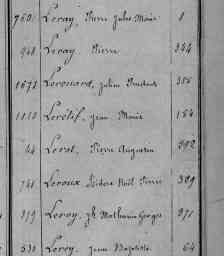 760 Leray, Pierre Jules Marie 8
948 Leray Pierre 344
1672 Lerouard, Julien Prudent 355
1110 Lerétif, Jean Marie 154
44 Lerot, Pierre Augustin 392
741 Leroux, Isidore Noël Pierre 389
319 Leroy, Jh Mathurin Georges 371
530 Leroy, Jean Baptiste 64